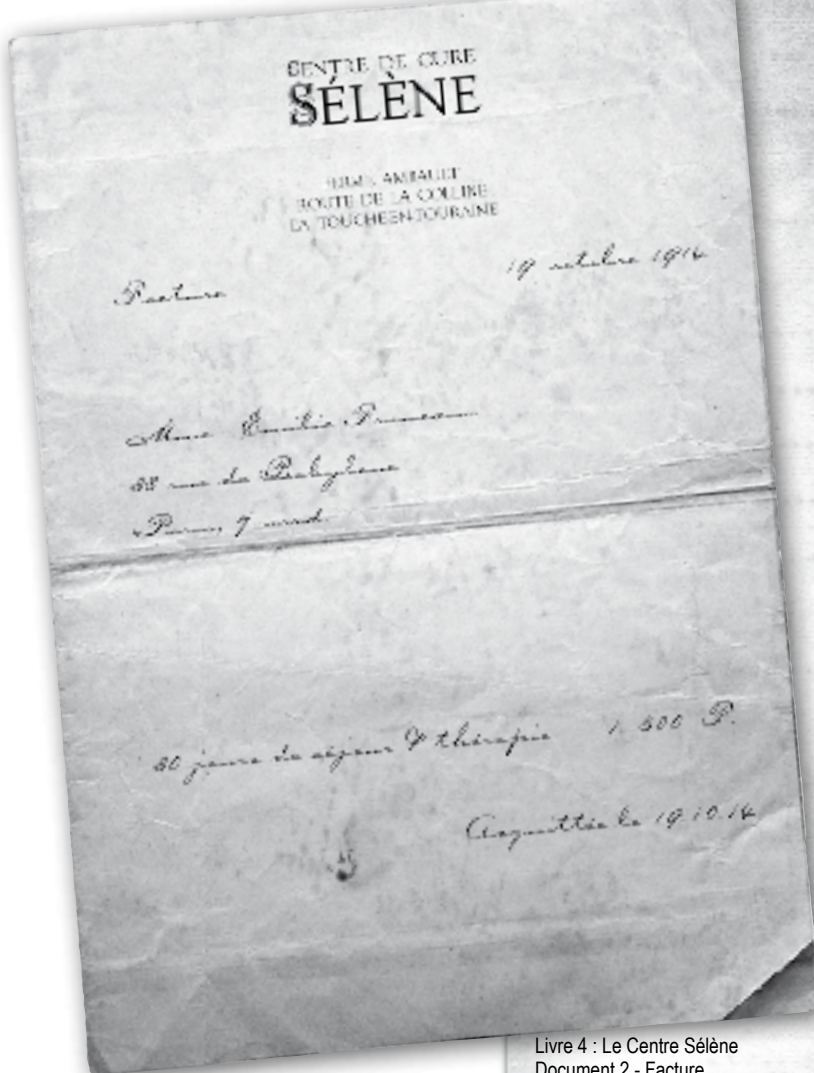 CENTRE DE CURE
SÉLÈNE
ROUTE DE LA COLLINE
LA TOUCHE-EN-TOURAINE
19 octobre 1914
Facture
Mme Emilie
rue de Babylone
Paris, 7 arrond.
jours de séjour & thérapie 1 500 F.
Acquittée le 19.10.14
Livre 4 : Le Centre Sélène
Document 2 - Facture